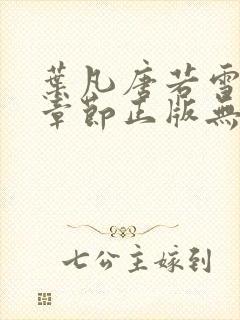 葉凡唐若雪
章節正版無
七公主嫁到